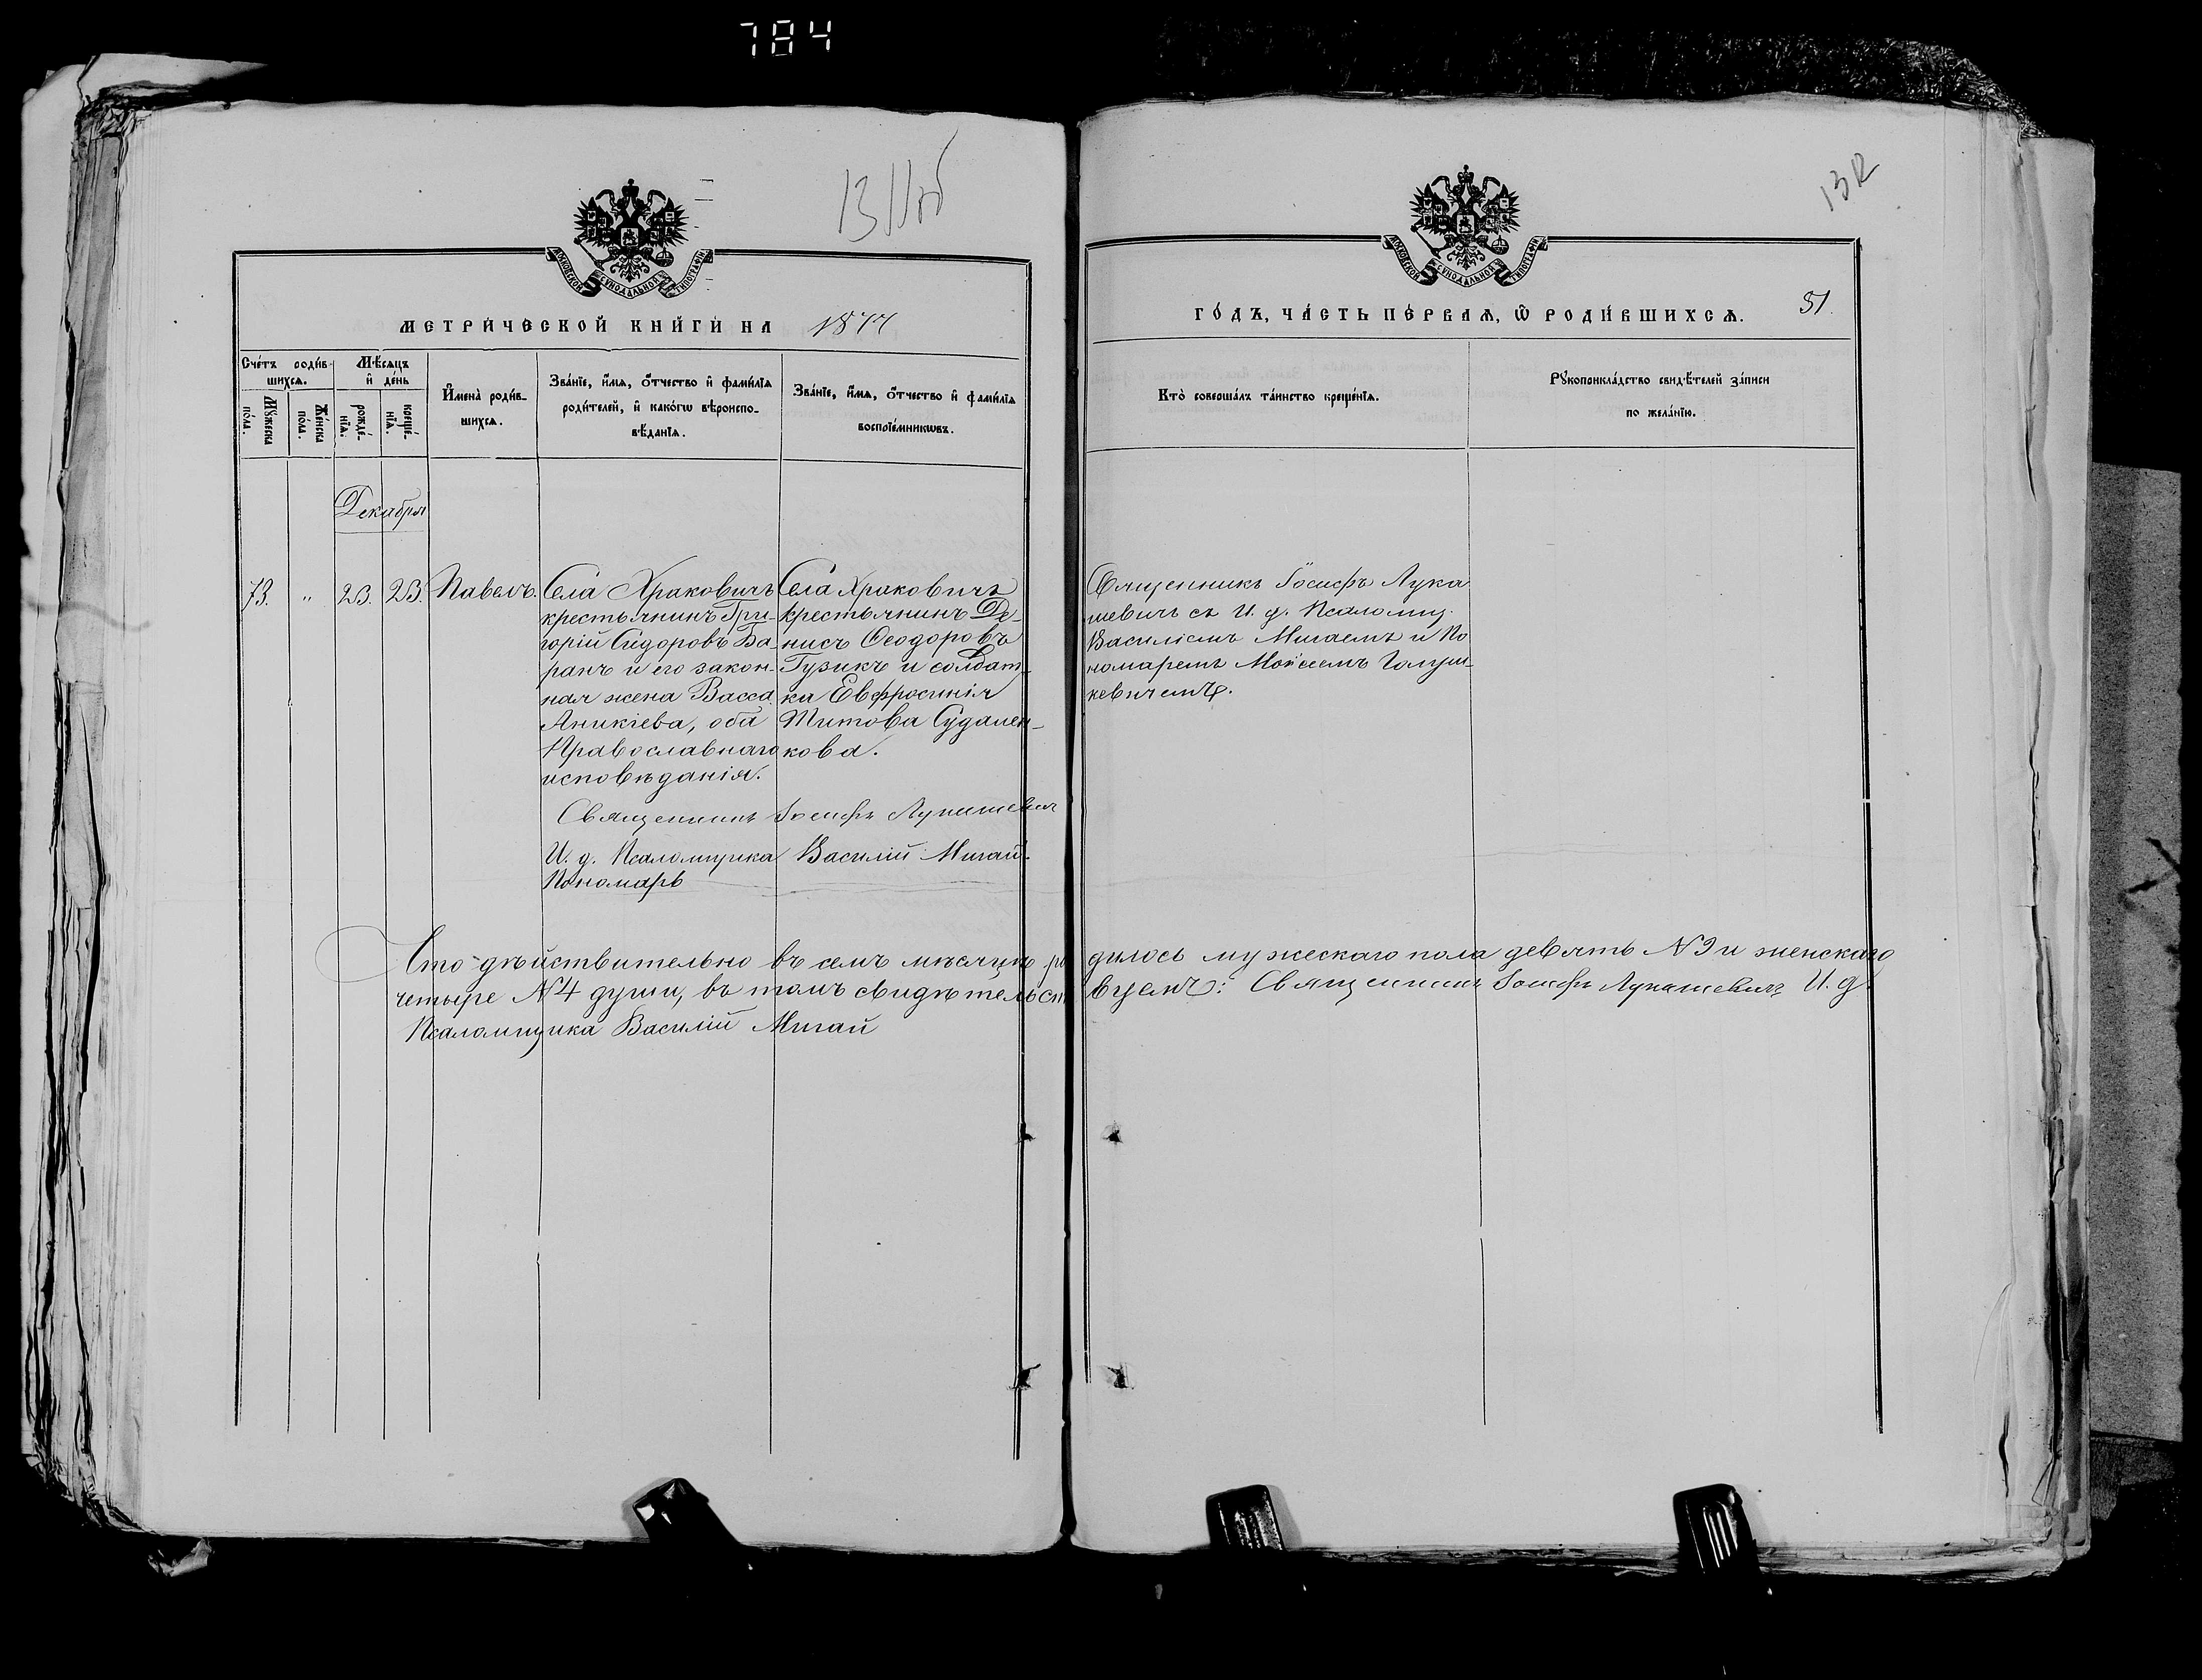 784
131 об
132
МОСКОВСКОЙ СѴНОДАЛЬНОЙ ТИПОГРАФІИ
МОСКОВСКОЙ СѴНОДАЛЬНОЙ ТИПОГРАФІИ
МЕТРИ́ЧЕСКОЙ КНИ́ГИ НА 1877
ГО́ДЪ, ЧА́СТЬ ПЕ́РВАѦ, Ѡ҆ РОДИ́ВШИХСѦ. 51.
Сче́тъ роди́в-
шихсѧ.
Мꙋ́жеска
по́ла.
Же́нска
по́ла.
Мѣ́сѧцъ
и҆ де́нь
рожде́-
нїѧ.
креще́-
нїѧ.
И҆мена̀ роди́в-
шихсѧ.
Зва́нїе, и҆́мѧ, ѻ҆́тчество и҆ фамѝлїѧ
роди́телей, и҆ како́гѡ вѣроиспо-
вѣ́данїѧ.
Зва́нїе, и҆́мѧ, ѻ҆́тчество и҆ фамѝлїѧ
воспрїе́мникѡвъ.
Кто̀ соверша́лъ та́инство креще́нїѧ.
Рꙋкоприкла́дство свидѣ́телей за́писи
по жела́нїю.
Декабря
73. " 23. 23. Павелъ.
Села Храковичъ
крестьянинъ Гри-
горій Сидоровъ Ба-
ранъ и его закон-
ная жена Васса
Аникіева, оба
Православнаго
исповѣданія.
Села Храковичъ
крестьянинъ Де-
нисъ Ѳеодоровъ
Гузикъ и солдат-
ка Евфросинія
Титова Судален-
кова.
Священникъ Іосифъ Лука
шевичъ съ И. д. Псаломщ.
Василіемъ Мигаемъ и По
номаремъ Моѵсеемъ Голуш-
кевичемъ.
Священникъ Іосифъ Лукашевичъ
И. д. Псаломщика Василій Мигай
Пономарь
Что дѣйствительно въ семъ мѣсяцѣ ро дилось мужескаго пола девять №9 и женскаго
четыре №4 души, въ томъ свидѣтельст вуемъ: Священникъ Іосифъ Лукашевичъ И. д.
Псаломщика Василій Мигай